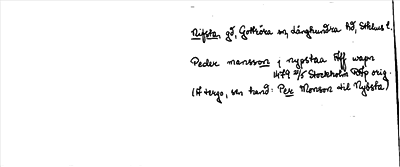 Nifsta gd, Gottröra sn, Långhundra hd, Sthlms l.
Peder mansson j nypstaa Aff wapn
1479 21/5 Stockholm RAp orig.
(A tergo, sen hand: Per Monson til Nybsta)